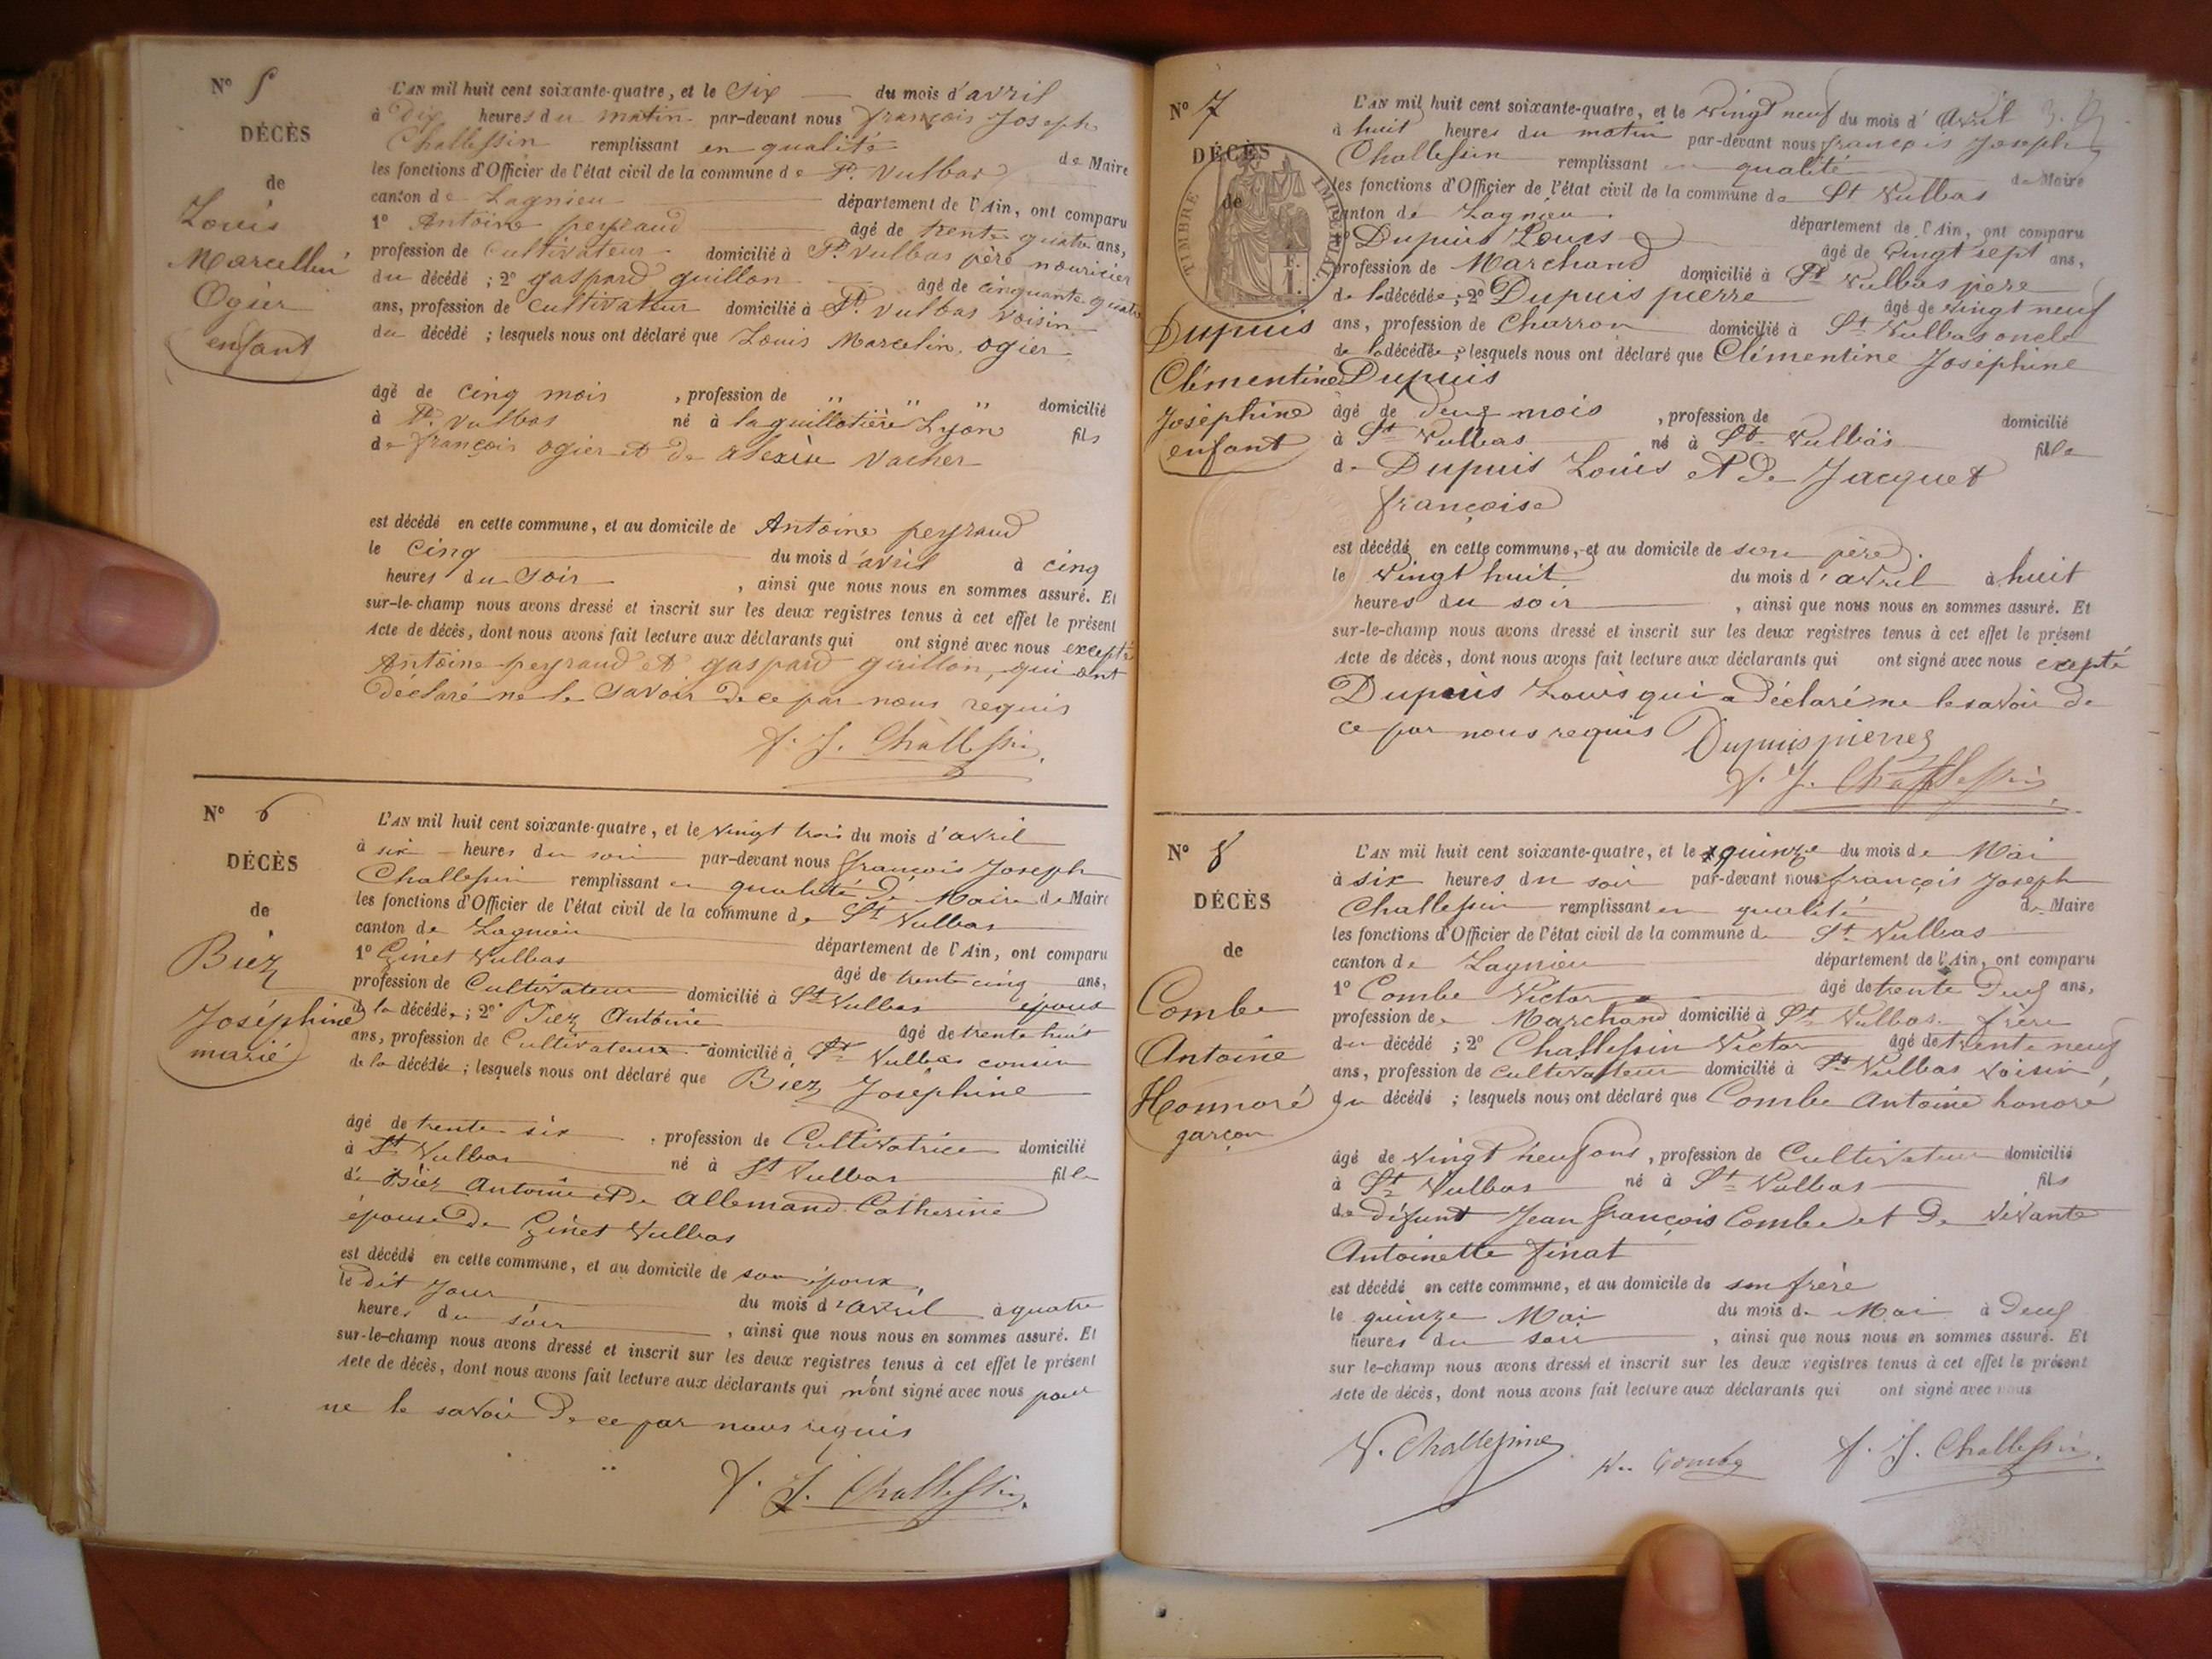 N° 5
DÉCÈS
de
Louis
Marcellin
Ogier
enfant
L'AN mil huit cent soixante-quatre, et le Six du mois d'avril
à Dix heures du matin par-devant nous françois Joseph
Challessin remplissant en qualité de Maire
les fonctions d'Officier de l'état civil de la commune de St. Vulbas
canton de Lagnieu département de l'Ain, ont comparu
1° Antoine peyraud âgé de trente quatre ans,
profession de Cultivateur domicilié à St. Vulbas père nouricier
du décédé ; 2° gaspard guillon âgé de cinquante quatre
ans, profession de Cultivateur domicilié à St. Vulbas voisin
du décédé ; lesquels nous ont déclaré que Louis Marcelin ogier
âgé de cinq mois , profession de ,, ,, ,, domicilié
à St. Vulbas né à la guillotière Lyon fils
de françois ogier et de alexie vacher
est décédé en cette commune, et au domicile de Antoine peyraud
le Cinq du mois d'avril à cinq
heures du Soir , ainsi que nous nous en sommes assuré. Et
sur-le-champ nous avons dressé et inscrit sur les deux registres tenus à cet effet le présent
Acte de décès, dont nous avons fait lecture aux déclarants qui ont signé avec nous excepté
Antoine peyraud et gaspard guillon, qui ont
Déclaré ne le Savoir de ce par nous requis
f. J. Challessin
N° 6
DÉCÈS
de
Biez
Joséphine
marié
L'AN mil huit cent soixante-quatre, et le vingt trois du mois d'avril
à six heures du soir par-devant nous françois Joseph
Challessin remplissant en qualité de Maire de Maire
les fonctions d'Officier de l'état civil de la commune de St Vulbas
canton de Lagnieu département de l'Ain, ont comparu
1° Ginet Vulbas âgé de trente cinq ans,
profession de Cultivateur domicilié à St Vulbas époux
de la décédée ; 2° Biez Antoine âgé de trente huit
ans, profession de Cultivateur domicilié à St Vulbas cousin
de la décédée ; lesquels nous ont déclaré que Biez Joséphine
âgé de trente six , profession de Cultivatrice domicilié
à St Vulbas né à St Vulbas fille
de Biez Antoine et de Allemand Catherine
épouse de Ginet Vulbas
est décédé en cette commune, et au domicile de son époux
le dit Jour du mois d'avril à quatre
heures du soir , ainsi que nous nous en sommes assuré. Et
sur-le-champ nous avons dressé et inscrit sur les deux registres tenus à cet effet le présent
Acte de décès, dont nous avons fait lecture aux déclarants qui n'ont signé avec nous pour
ne le savoir de ce par nous requis
f. J. Challessin
N° 7
DÉCÈS
de
TIMBRE IMPÉRIAL
Dupuis
Clémentine
Joséphine
enfant
L'AN mil huit cent soixante-quatre, et le vingt neuf du mois d'Avril
à huit heures du matin par-devant nous françois Joseph
Challessin remplissant en qualité de Maire
les fonctions d'Officier de l'état civil de la commune de St Vulbas
canton de Lagnieu département de l'Ain, ont comparu
1° Dupuis Louis âgé de vingt sept ans,
profession de Marchand domicilié à St Vulbas père
de la décédée ; 2° Dupuis pierre âgé de vingt neuf
ans, profession de Charron domicilié à St Vulbas oncle
de la décédée ; lesquels nous ont déclaré que Clémentine Joséphine
Dupuis
âgé de deux mois , profession de domicilié
à St Vulbas né à St Vulbas fille
de Dupuis Louis et de Jacquet
françoise
est décédé en cette commune, et au domicile de son père
le vingt huit du mois d'avril à huit
heures du soir , ainsi que nous nous en sommes assuré. Et
sur-le-champ nous avons dressé et inscrit sur les deux registres tenus à cet effet le présent
Acte de décès, dont nous avons fait lecture aux déclarants qui ont signé avec nous exepté
Dupuis Louis qui a déclaré ne le savoir de
ce par nous requis Dupuis pierre
f. J. Challessin
N° 8
DÉCÈS
de
Combe
Antoine
Honnoré
garçon
L'AN mil huit cent soixante-quatre, et le quinze du mois de Mai
à six heures du soir par-devant nous françois Joseph
Challessin remplissant en qualité de Maire
les fonctions d'Officier de l'état civil de la commune de St Vulbas
canton de Lagnieu département de l'Ain, ont comparu
1° Combe Victor âgé de trente Deux ans,
profession de Marchand domicilié à St Vulbas frère
du décédé ; 2° Challessin Victor âgé de trente neuf
ans, profession de Cultivateur domicilié à St Vulbas voisin
du décédé ; lesquels nous ont déclaré que Combe Antoine honoré
âgé de vingt neuf ans , profession de Cultivateur domicilié
à St Vulbas né à St Vulbas fils
de défunt Jean françois Combe et de vivante
Antoinette finat
est décédé en cette commune, et au domicile de son frère
le quinze Mai du mois de Mai à Deux
heures du soir , ainsi que nous nous en sommes assuré. Et
sur le-champ nous avons dressé et inscrit sur les deux registres tenus à cet effet le présent
Acte de décès, dont nous avons fait lecture aux déclarants qui ont signé avec nous
V. Challessin Combe f. J. Challessin